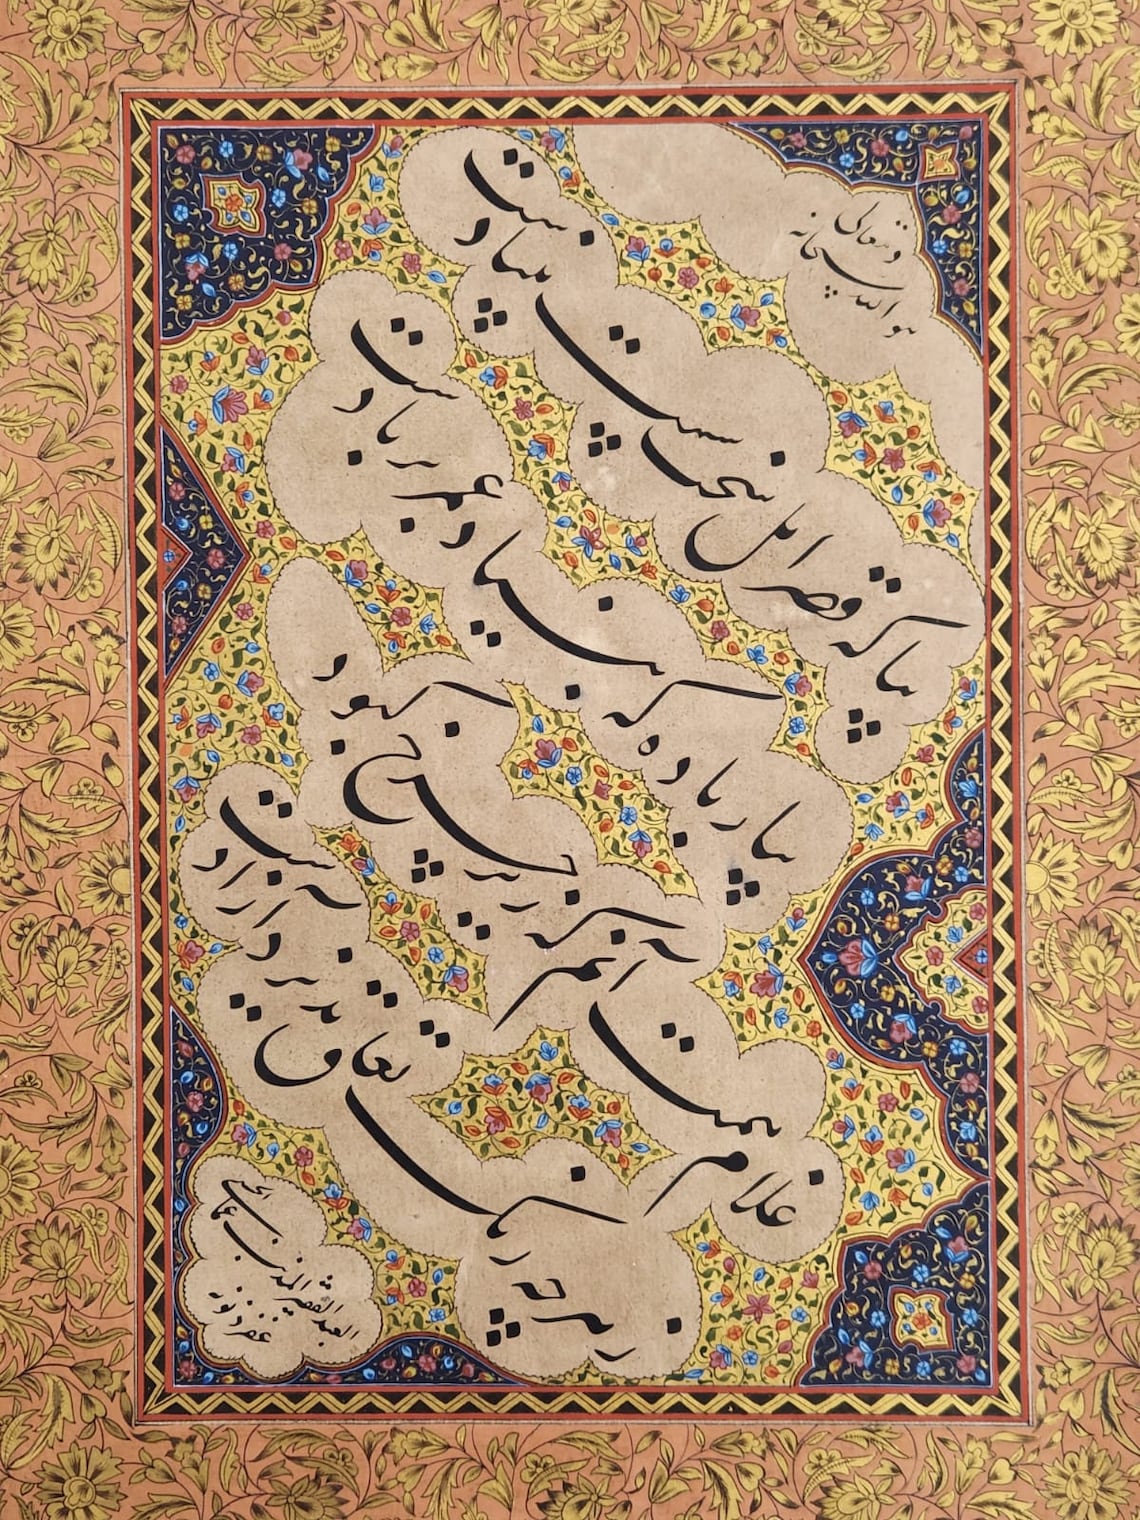 هو الله سبحانه و تعالی
بیا که قصر امل سخت سست بنیادست
بیار باده که بنیاد عمر بر بادست
غلام همت آنم که زیر چرخ کبود
ز هرچه رنگ تعلق پذیرد آزادست
العبد الفقیر المذنب عماد الحسنی
غفر ذنوبه